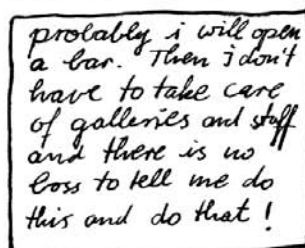 probably i will open
a bar. Then i don't
have to take care
of galleries and stuff
and there is no
boss to tell me do
this and do that!